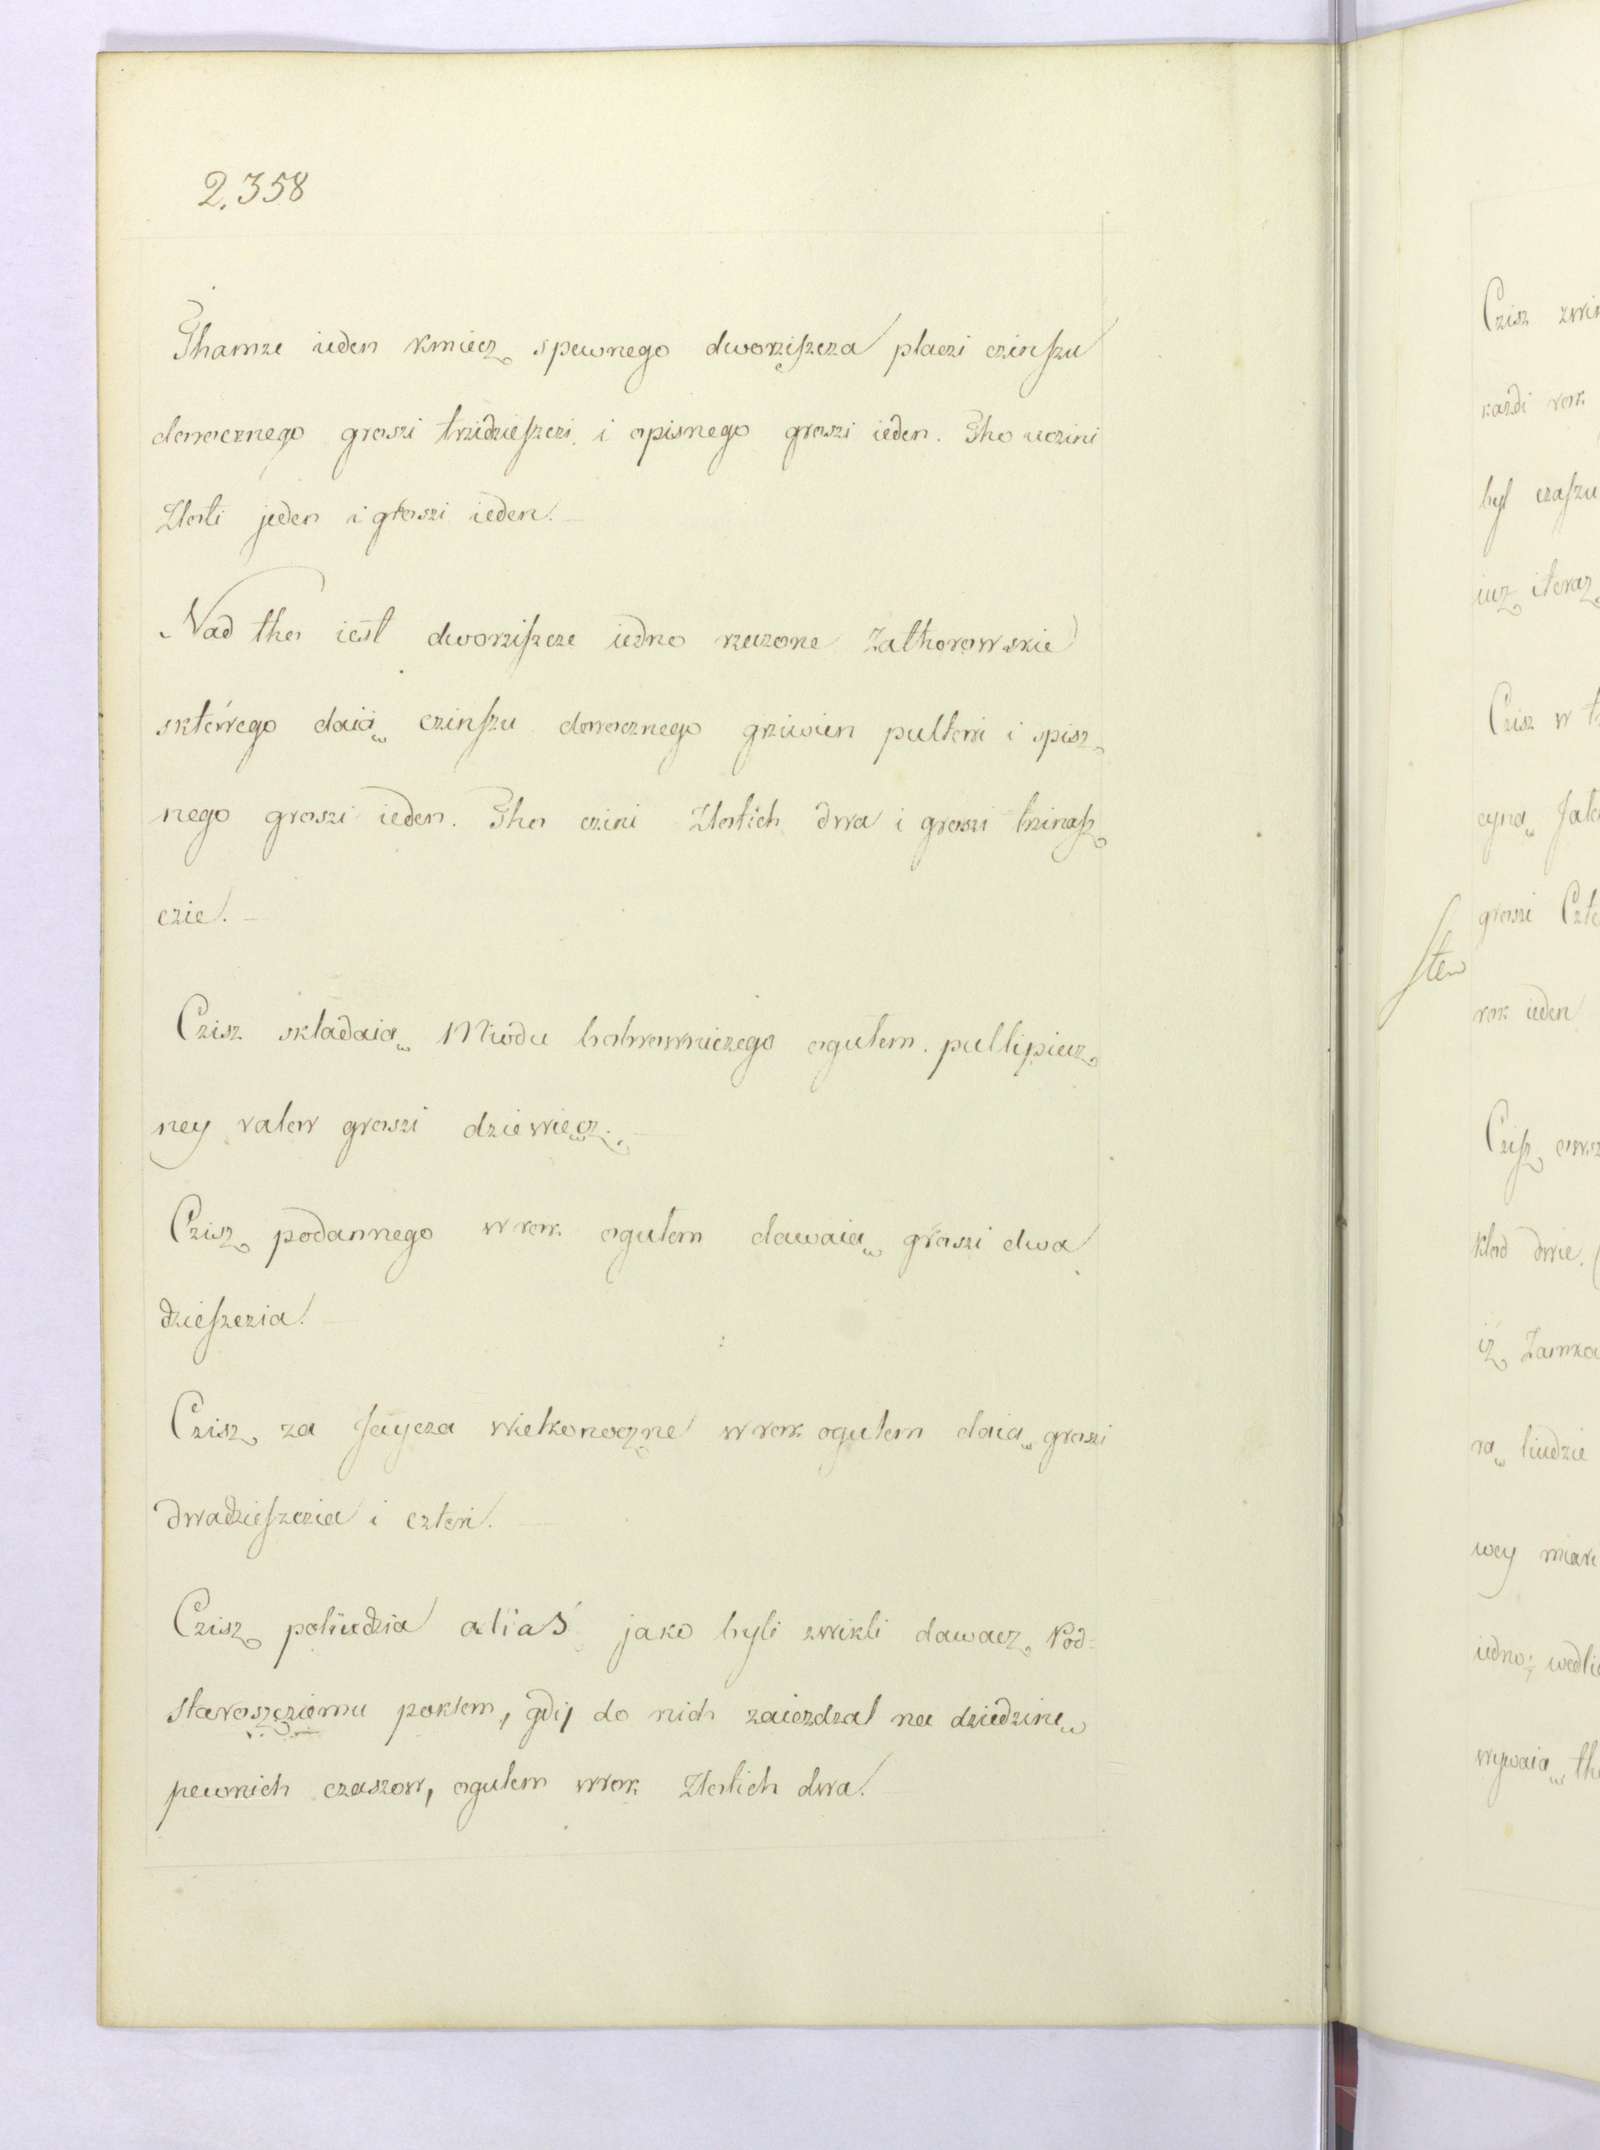 2.358
Thamze ieden kmiecz spewnego dworziszcza placzi czinszu
dorocznego groszi trzidzieszczi i opisnego groszi ieden. Tho uczini
Zloti jeden i groszi ieden.
Nad tho iest dworziszcze iedno rzeczone Zathorowskie
sktórego daią czinszu dorocznego grziwien pultori i spisz
nego groszi ieden. Tho czini Zlotich dwa i groszi trzinasz
czie.
Czisz skladaią Miodu bobrowniczego ogulem pullipiecz
ney valor groszi dziewięcz.
Czisz podannego w rok ogulem dawaią groszi dwa
dzieszczia.
Czisz za Jaycza wielkonoczne w rok ogulem daią groszi
dwadzieszczia i czteri.
Czisz poliudzia alias jako byli zwikli dawacz Pod=
staroszcziemu poktem, gdij do nich zaiezdzal na dziedzinę
pewnich czaszow, ogulem wrok Zlotich dwa.
Czisz
każdi rok
byl czaszu
iuz iteraz
Czisz w
groszi
sten
rok ieden
Czisz
klod dwie.
iż Zamka
liudzie
wey miari
iedno;